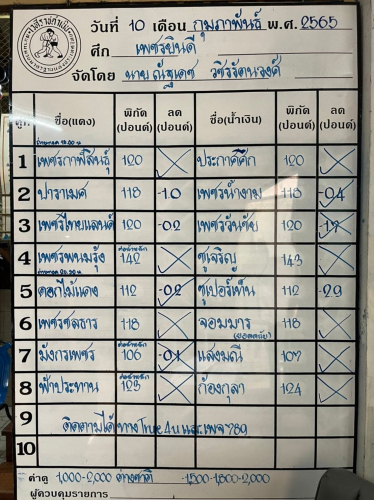 วันที่ 10 เดือน กุมภาพันธ์ พ.ศ. 2565
ศึก เพชรยินดี
จัดโดย นาย ณัฐเดช วชิรรัตนวงศ์
คู่ที่ ชื่อ(แดง) พิกัด (ปอนด์) ลด (ปอนด์) ชื่อ(น้ำเงิน) พิกัด (ปอนด์) ลด (ปอนด์)
1 เพชรกาฬสินธุ์ 120 ประกาศิศึก 120
2 ปาราเมศ 118 -1.0 เพชรน้ำงาม 118 -0.4
3 เพชรไทยแลนด์ 120 -0.2 เพชรวันชัย 120
4 เพชรพนมรุ้ง 142 ชูเจริญ 143
5 ดอกไม้แดง 112 -0.2 ซุปเปอร์เก็น 112 -2.9
6 เพชรชลธาร 118 จอมมาร 118
7 มังกรเพชร 106 -0.1 แสงมณี 107
8 ฟ้าประทาน 123 ก้องกุลา 124
9 ติดตามได้ทาง True4u และเพจ 789
10
ค่าดู 1,000-2,000 ต่างชาติ 1,500-1,800-2,000
ผู้ควบคุมรายการ